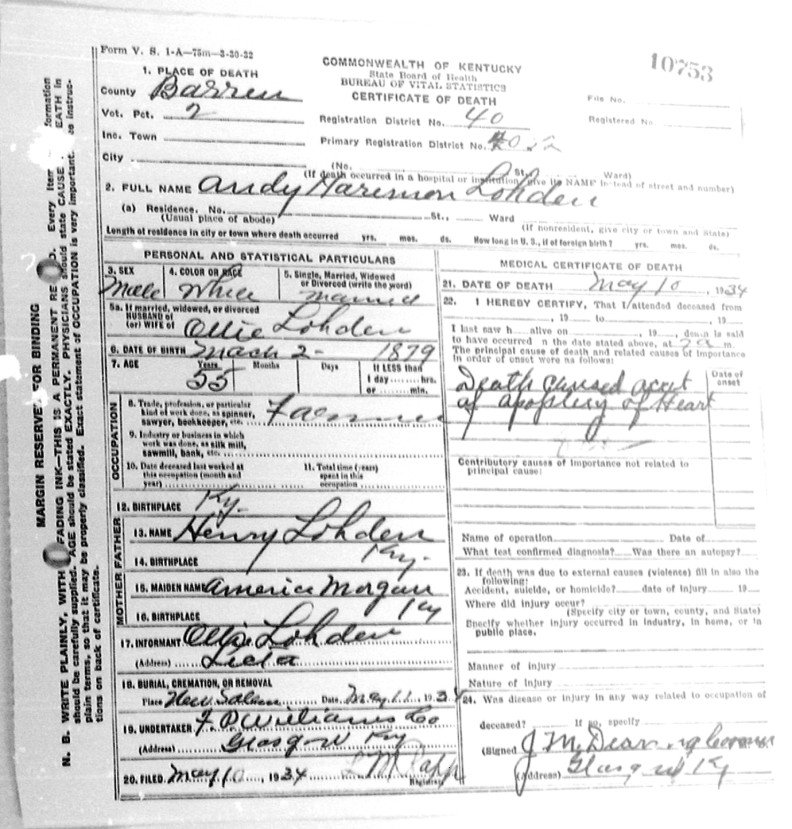 Form V. S. 1-A—75m—3-30-32
10753
COMMONWEALTH OF KENTUCKY
State Board of Health
BUREAU OF VITAL STATISTICS
CERTIFICATE OF DEATH
1. PLACE OF DEATH
County Barren
Vot. Pct. 2
Inc. Town
City
Registration District No. 40
Primary Registration District No.
File No.
Registered No.
(No. St., Ward)
(If death occurred in a hospital or institution, give its NAME instead of street and number)
2. FULL NAME Andy Haremon Lohden
(a) Residence. No. St., Ward
(Usual place of abode) (If nonresident, give city or town and State)
Length of residence in city or town where death occurred yrs. mos. ds. How long in U. S., if of foreign birth? yrs. mos. ds.
PERSONAL AND STATISTICAL PARTICULARS
3. SEX Male
4. COLOR OR RACE White
5. Single, Married, Widowed or Divorced (write the word) Married
5a. If married, widowed, or divorced
HUSBAND of
(or) WIFE of Ollie Lohden
6. DATE OF BIRTH Mach 2- 1879
7. AGE Years 55 Months Days If LESS than 1 day hrs. or min.
OCCUPATION
8. Trade, profession, or particular kind of work done, as spinner, sawyer, bookkeeper, etc. Farmer
9. Industry or business in which work was done, as silk mill, sawmill, bank, etc.
10. Date deceased last worked at this occupation (month and year)
11. Total time (years) spent in this occupation
12. BIRTHPLACE Ky.
FATHER
13. NAME Henry Lohden
14. BIRTHPLACE Ky.
MOTHER
15. MAIDEN NAME America Morgan
16. BIRTHPLACE Ky
17. INFORMANT Ollie Lohden
(Address)
18. BURIAL, CREMATION, OR REMOVAL
Place New Salem Date May 11 1934
19. UNDERTAKER F. P. Williams Co
(Address) Glasgow Ky
20. FILED May 10, 1934
Registrar
MEDICAL CERTIFICATE OF DEATH
21. DATE OF DEATH May 10, 1934
22. I HEREBY CERTIFY, That I attended deceased from
, 19 to , 19
I last saw h alive on , 19 , death is said
to have occurred on the date stated above, at m.
The principal cause of death and related causes of importance
in order of onset were as follows:
Date of onset
Death caused acct
of apoplexy of Heart
Contributory causes of importance not related to
principal cause:
Name of operation Date of
What test confirmed diagnosis? Was there an autopsy?
23. If death was due to external causes (violence) fill in also the
following:
Accident, suicide, or homicide? date of injury 19
Where did injury occur?
(Specify city or town, county, and State)
Specify whether injury occurred in industry, in home, or in
public place.
Manner of injury
Nature of injury
24. Was disease or injury in any way related to occupation of
deceased? If so, specify
(Signed J M Dearing Coroner
(Address) Glasgow Ky
MARGIN RESERVED FOR BINDING
N. B. WRITE PLAINLY, WITH UNFADING INK—THIS IS A PERMANENT RECORD. Every item information
should be carefully supplied. AGE should be stated EXACTLY. PHYSICIANS should state CAUSE DEATH in
plain terms, so that it may be properly classified. Exact statement of OCCUPATION is very important. instruc-
tions on back of certificate.